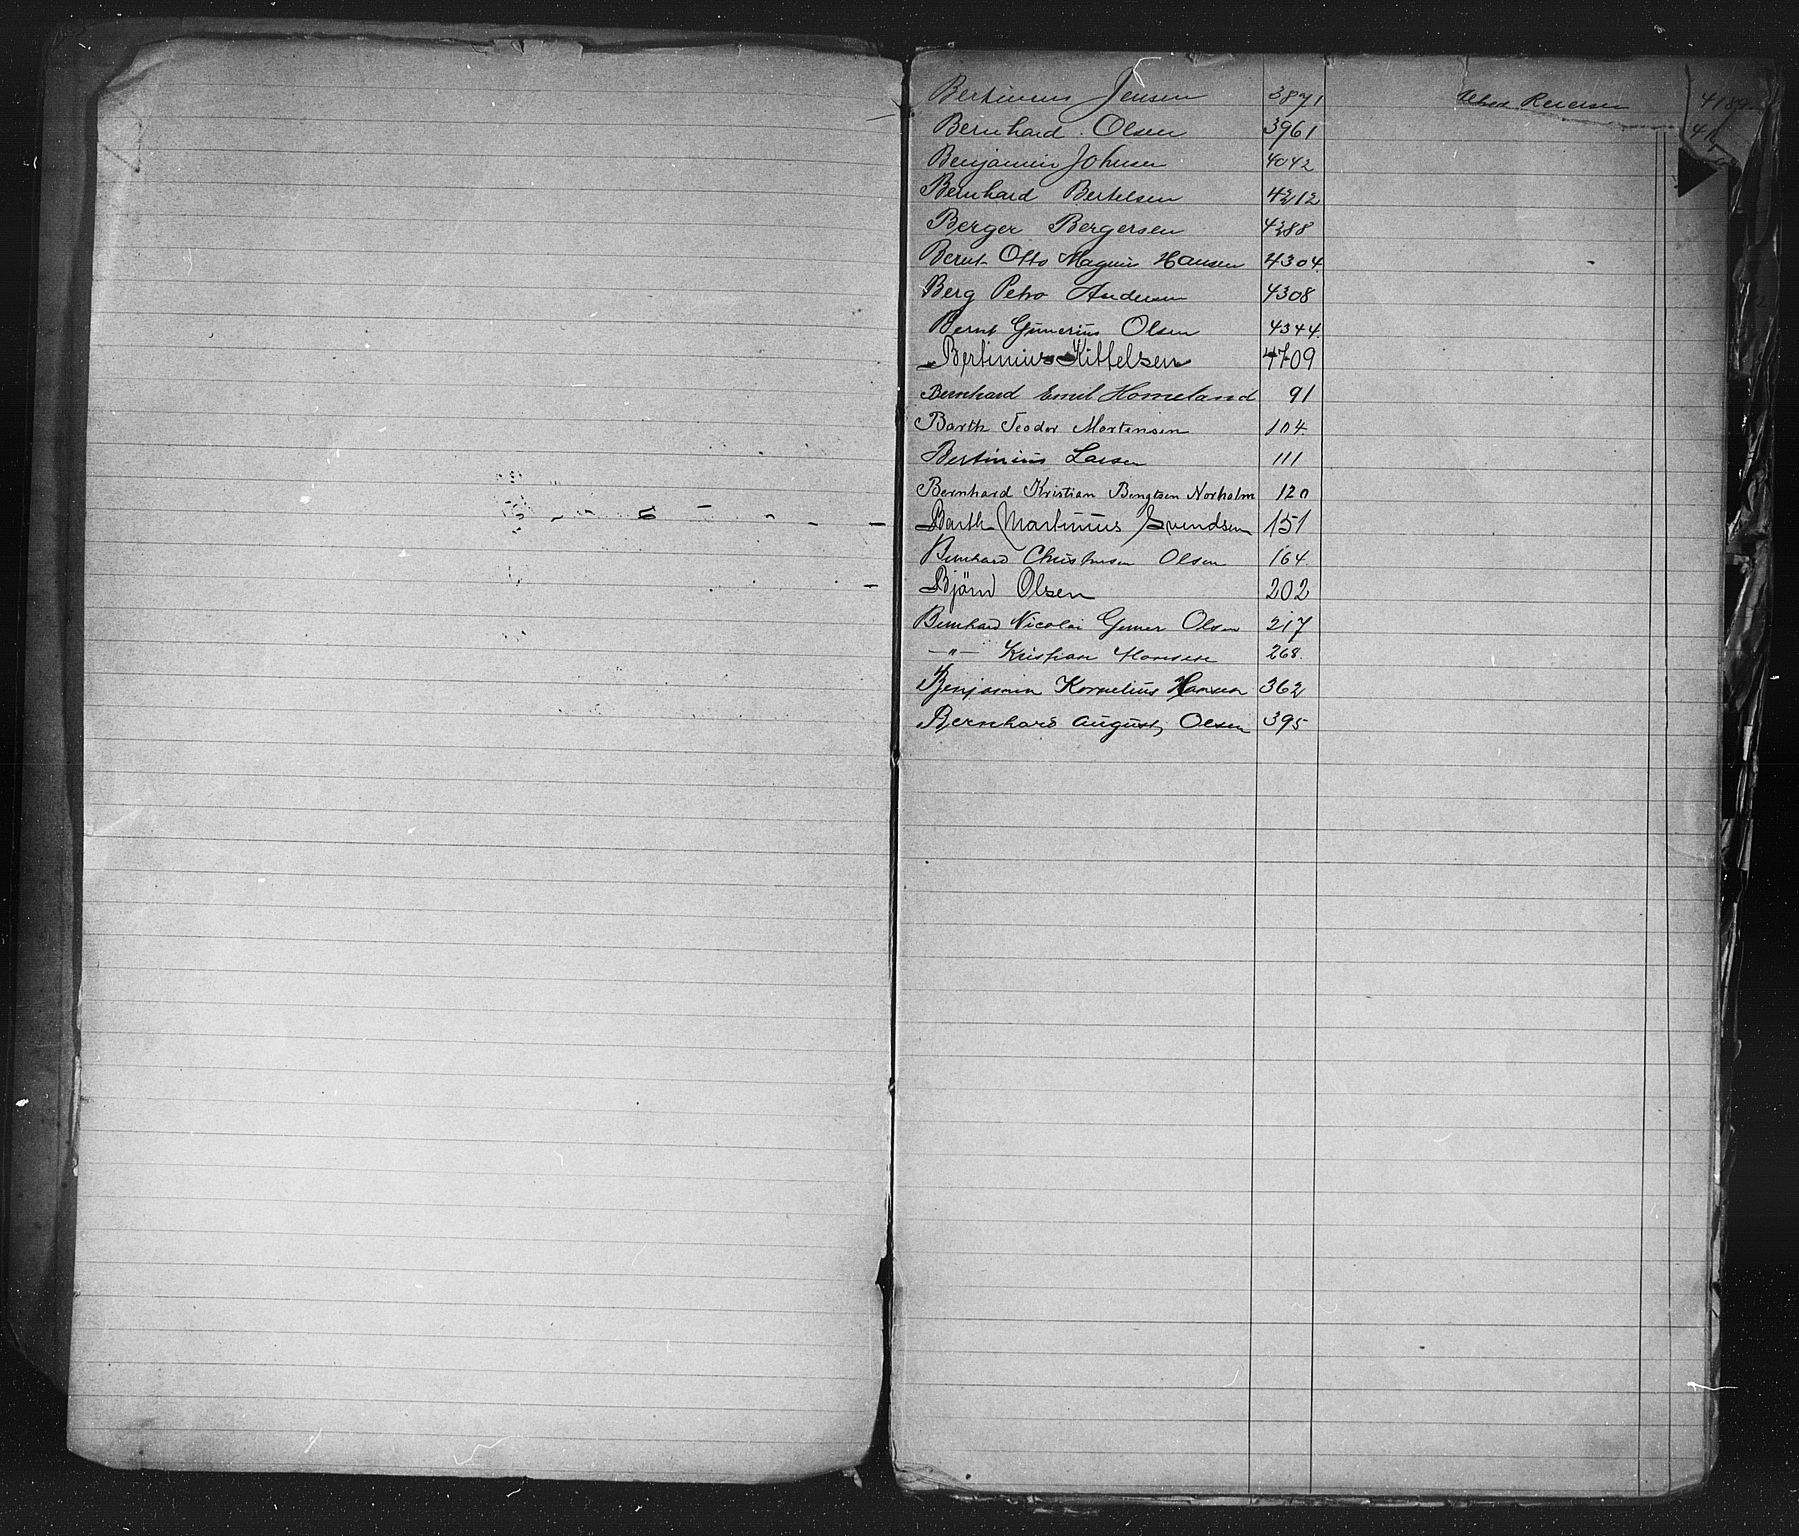 Bertinius Jensen 3871
Bernhard Olsen 3961
Benjamin Johnsen 4042
Bernhard Bertelsen 4212
Berger Bergersen 4288
Bernt Otto Magnus Hansen 4304.
Berg Petro Andersen 4308
Bernt Gunerius Olsen 4344.
Bertinius Kittelsen 4709
Bernhard Emil Homeland 91
Barth Teodor Mortensen 104.
Bertinius Larsen 111
Bernhard Kristian Bengtsen Norholm 120
Barth Martinius Svendsen 151
Bernhard Christensen Olsen 164
Bjönd Olsen 202
Bernhard Nicolai Gunner Olsen 217
—"— Kristian Hansen 268.
Benjamin Kornelius Hansen 362
Bernhard August Olsen 395
4189